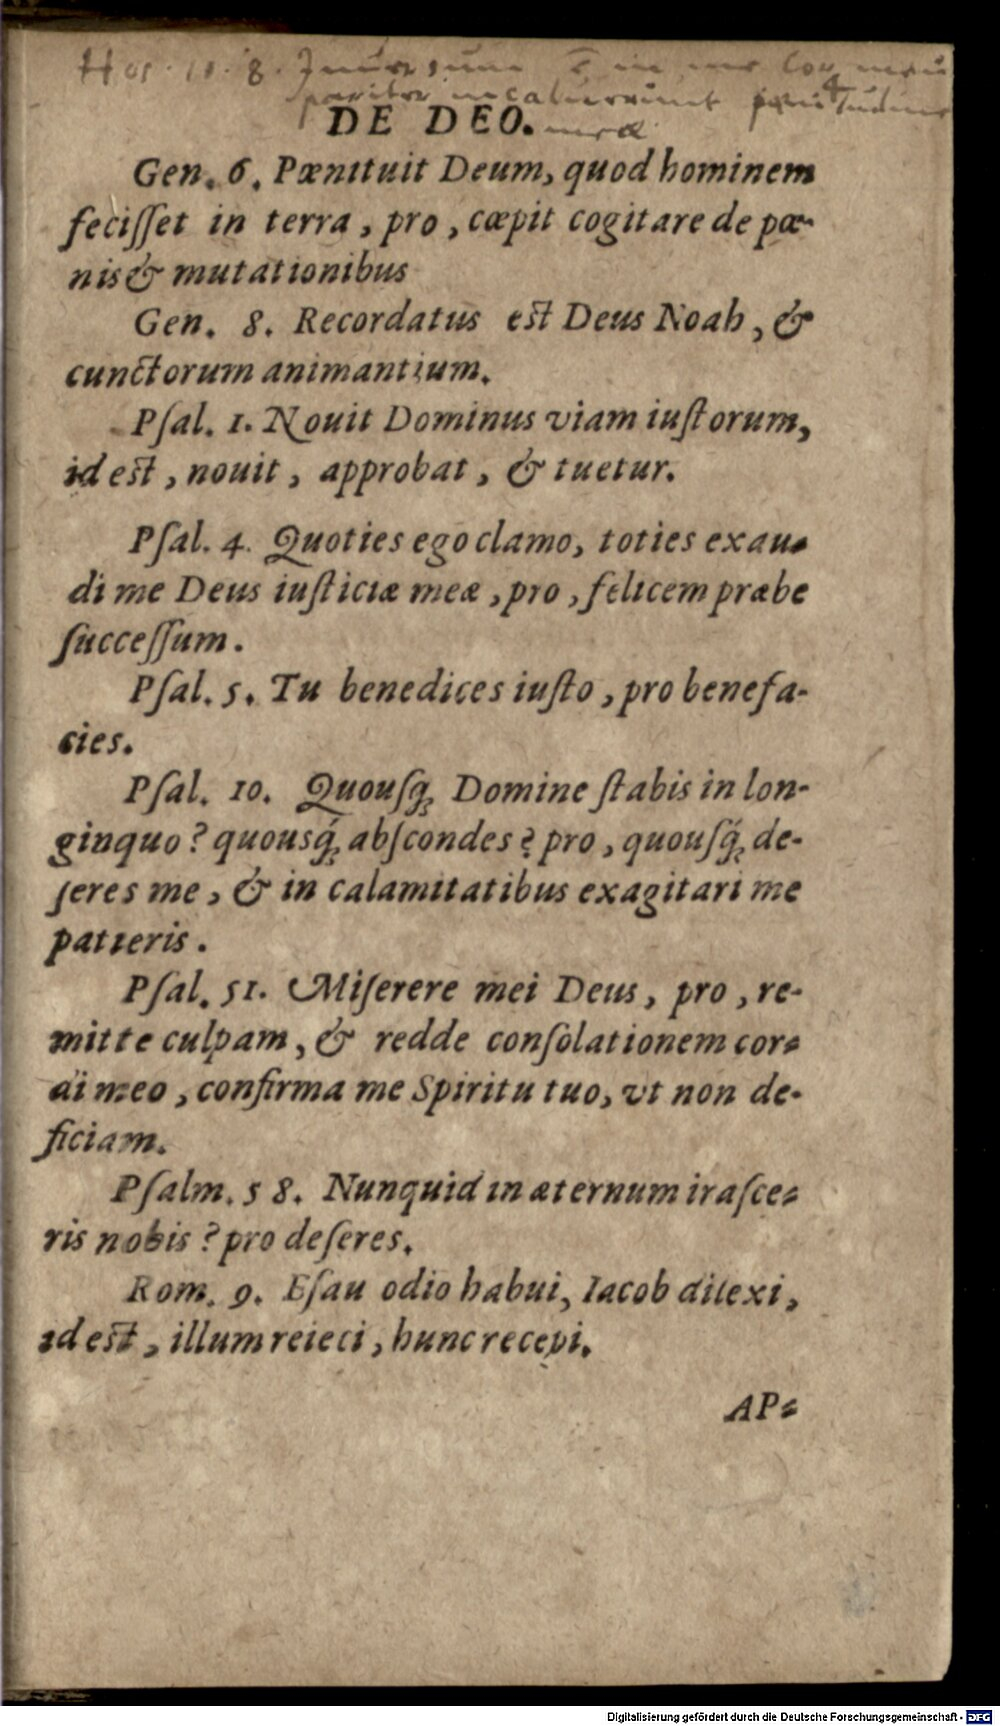 Hos. 11. 8. Inuersum ē in me Cor meū
pariter incaluerunt
DE DEO. meæ
Gen. 6. Pœnituit Deum, quod hominem
feciſſet in terra, pro, cœpit cogitare de pœ-
nis & mutationibus
Gen. 8. Recordatus eſt Deus Noah, &
cunctorum animantium.
Pſal. 1. Nouit Dominus viam iuſtorum,
id eſt, nouit, approbat, & tuetur.
Pſal. 4. Quoties ego clamo, toties exau-
di me Deus iuſticiæ meæ, pro, felicem præbe
ſucceſſum.
Pſal. 5. Tu benedices iuſto, pro benefa-
cies.
Pſal. 10. Quouſq; Domine ſtabis in lon-
ginquo? quousq́; abſcondes? pro, quouſq́; de-
ſeres me, & in calamitatibus exagitari me
patieris.
Pſal. 51. Miſerere mei Deus, pro, re-
mitte culpam, & redde conſolationem cor-
di meo, confirma me Spiritu tuo, vt non de-
ficiam.
Pſalm. 58. Nunquid in æternum iraſce-
ris nobis? pro deſeres.
Rom. 9. Eſau odio habui, Iacob dilexi,
id eſt, illum reieci, hunc recepi.
AP-
Digitalisierung gefördert durch die Deutsche Forschungsgemeinschaft - DFG